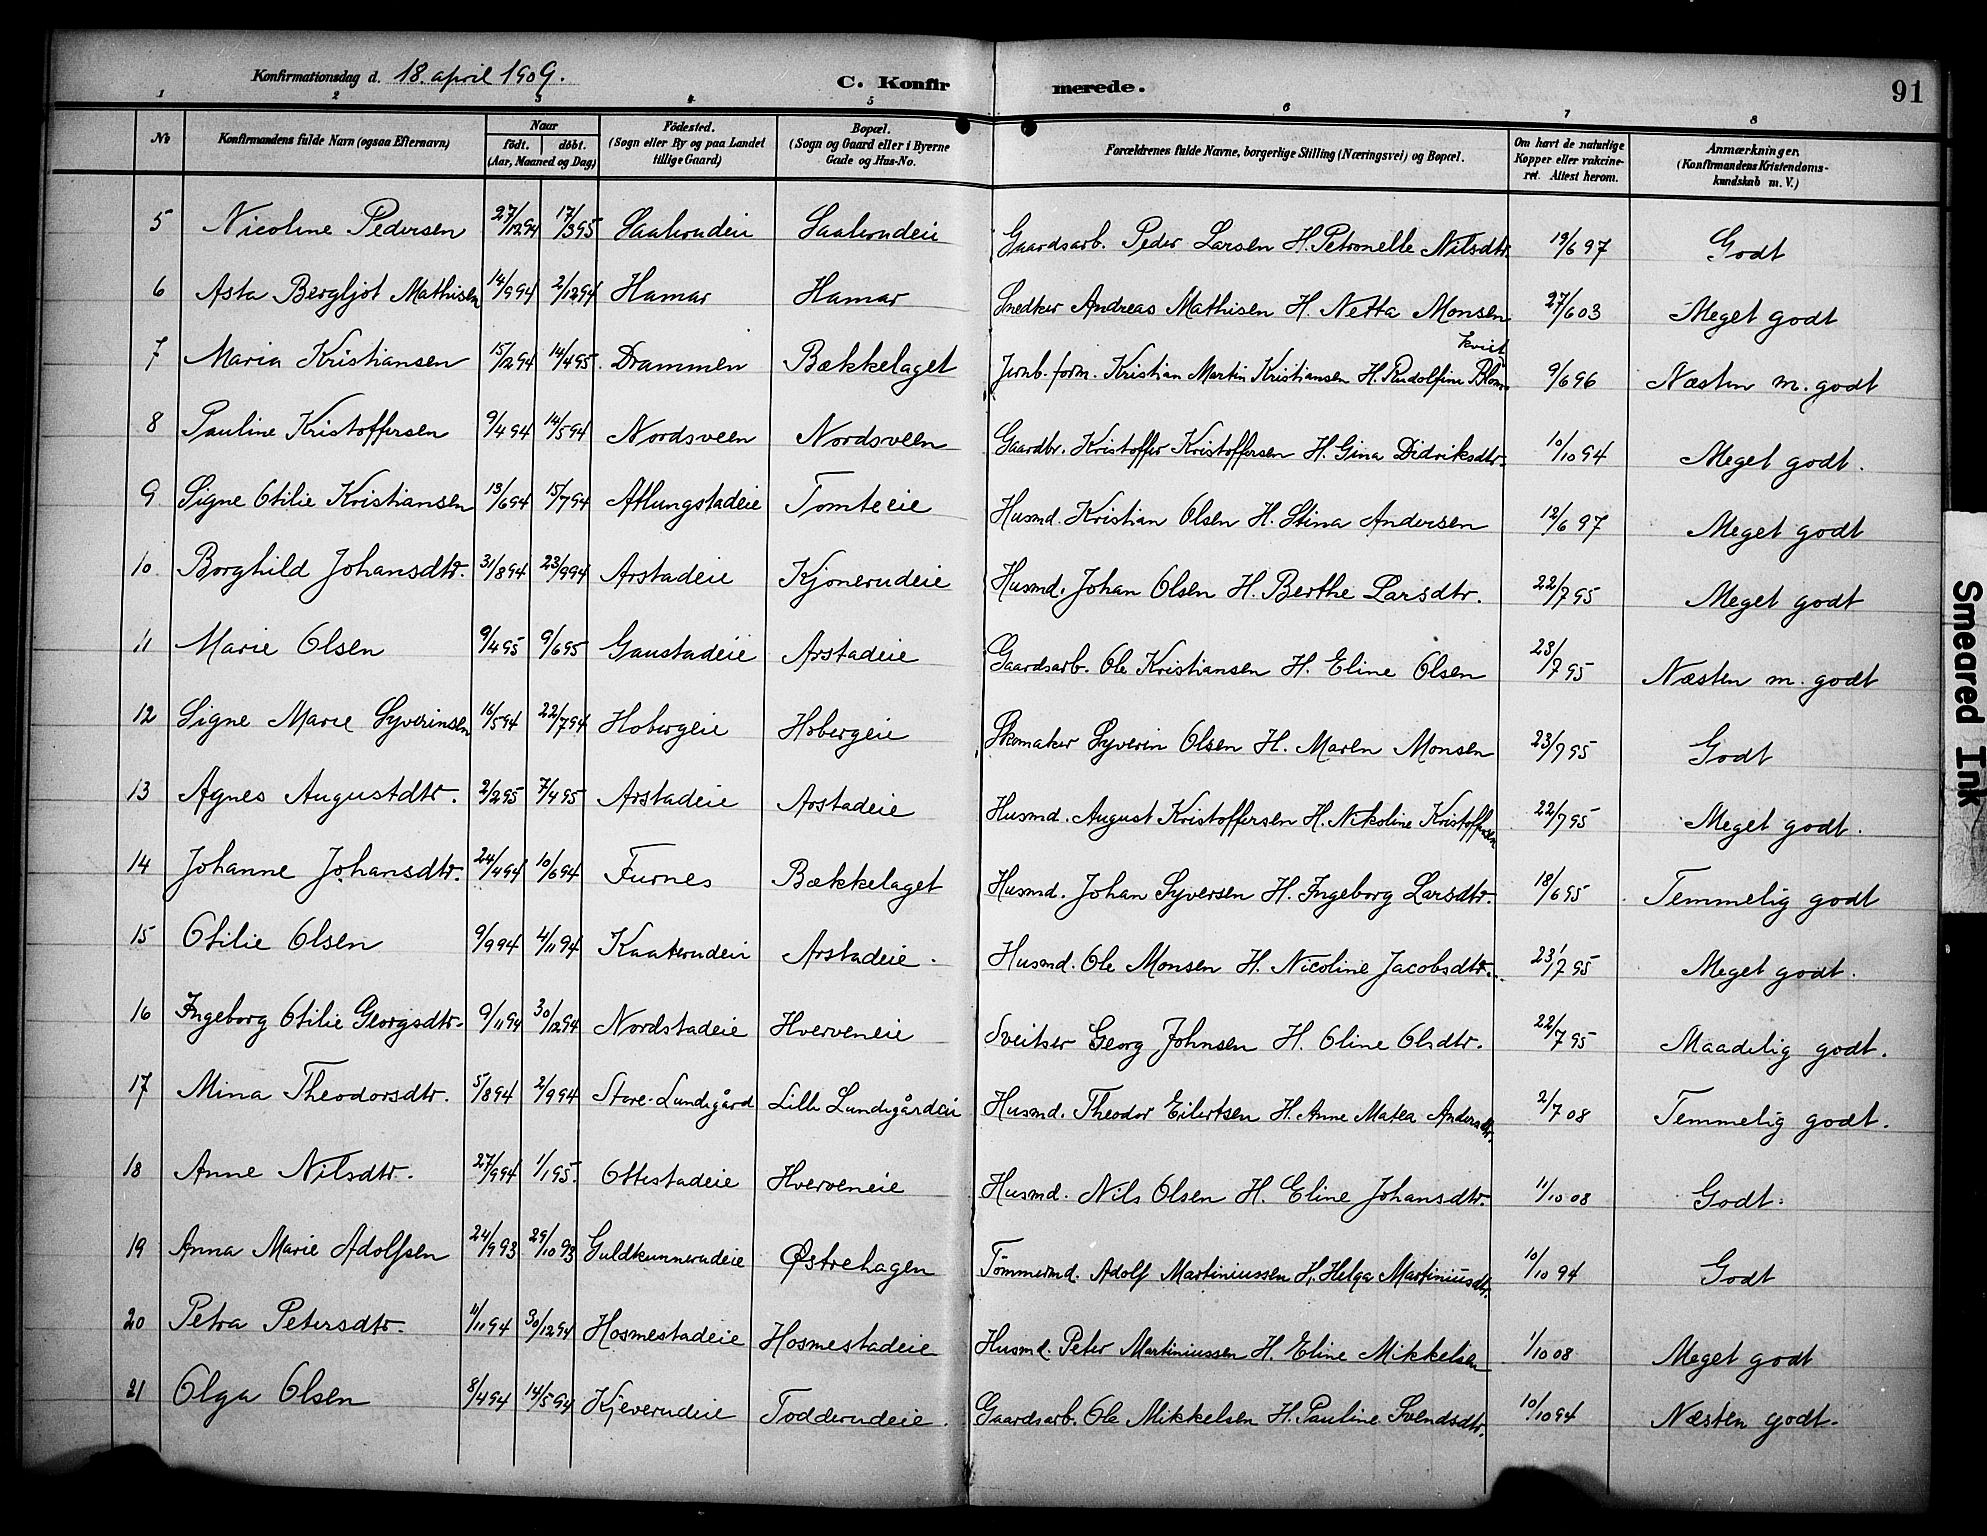 Konfirmationsdag d. 18. april 1909. C. Konfir merede. 91
1 2 3 4 5 6 7 8
No Konfirmandens fulde Navn (ogsaa Efternavn) Naar født. døbt. (Aar, Maaned og Dag) Fødested. (Sogn eller By og paa Landet tillige Gaard) Bopæl. (Sogn og Gaard eller i Byerne Gade og Hus-No. Forældrenes fulde Navne, borgerlige Stilling (Næringsvei) og Bopæl. Om havt de naturlige Kopper eller vakcineret. Attest herom. Anmærkninger. (Konfirmandens Kristendomskundskab m. V.)
5 Nicoline Pedersen 27/12 94 17/3 95 Saaherudeie Saaherudeie Gaardsarb. Peder Larsen H. Petronelle Nilsdtr. 19/6 97 Godt
6 Asta Bergljot Mathisen 14/9 94 2/12 94 Hamar Hamar Snedker Andreas Mathisen H. Netta Monsen 27/6 03 Meget godt
7 Maria Kristiansen 15/2 94 14/4 95. Drammen Bækkelaget Jernb. form. Kristian Martin Kristiansen H. Rudolfine Blom 9/6 96 Næsten m. godt
8 Pauline Kristoffersen 9/4 94 14/5 94 Nordsveen Nordsveen Gaardbr. Kristoffer Kristoffersen H. Gina Didriksdtr. 10/10 94 Meget godt.
9. Signe Otilie Kristiansen 13/6 94 15/7 94 Atlungstadeie Tomteeie Husmd. Kristian Olsen H. Stina Andersen 12/6 97 Meget godt
10. Borghild Johansdtr. 31/8 94 23/9 94 Arstadeie Kjonerudeie Husmd. Johan Olsen H. Berthe Larsdtr. 22/7 95 Meget godt
11 Marie Olsen 9/4 95 9/6 95 Gaustadeie Arstadeie Gaardsarb. Ole Kristiansen H. Eline Olsen 23/7 95 Næsten m. godt
12 Signe Marie Syverinsen 16/5 94 22/7 94 Hobergeie Hobergeie Skomaker Syverin Olsen H. Maren Monsen 23/7 95 Godt
13 Agnes Augustdtr. 2/2 95 7/4 95 Arstadeie Arstadeie Husmd. August Kristoffersen H. Nikoline Kristoffersen 22/7 95 Meget godt.
14 Johanne Johansdtr. 24/4 94 10/6 94 Furnes Bækkelaget Husmd. Johan Syversen H. Ingeborg Larsdtr. 18/6 95 Temmelig godt
15 Otilie Olsen 9/9 94 4/11 94 Kaaterudeie Arstadeie. Husmd. Ole Monsen H. Nicoline Jacobsdtr. 23/7 95 Meget godt.
16 Ingeborg Otilie Georgsdtr. 9/11 94 30/12 94 Nordstadeie Hverveneie Sveitser Georg Johnsen H. Oline Olsdtr. 22/7 95 Maadelig godt.
17 Mina Theodorsdtr. 5/8 94 2/9 94 Store-Lundsgård Lille Lundsgårdeie Husmd. Theodor Eilertsen H. Anne Matea Andersdtr. 2/7 08 Temmelig godt.
18 Anne Nilsdtr. 27/9 94 1/1 95. Ottestadeie Hverveneie Husmd. Nils Olsen H. Eline Johansdtr. 11/10 08 Godt.
19 Anna Marie Adolfsen 24/9 93 29/10 93 Guldkunnerudeie Østrehagen Tömmermd. Adolf Martiniussen H. Helga Martiniusdtr. 10/10 94 Godt
20 Petra Petersdtr. 11/11 94 30/12 94 Hosmestadeie Hosmestadeie Husmd. Peter Martiniussen H. Eline Mikkelsen 1/10 08 Meget godt
21 Olga Olsen 8/4 94 14/5 94 Kjeverudeie Todderudeie. Gaardsarb. Ole Mikkelsen H. Pauline Svendsdtr. 10/10 94 Næsten godt.
Smeared Ink